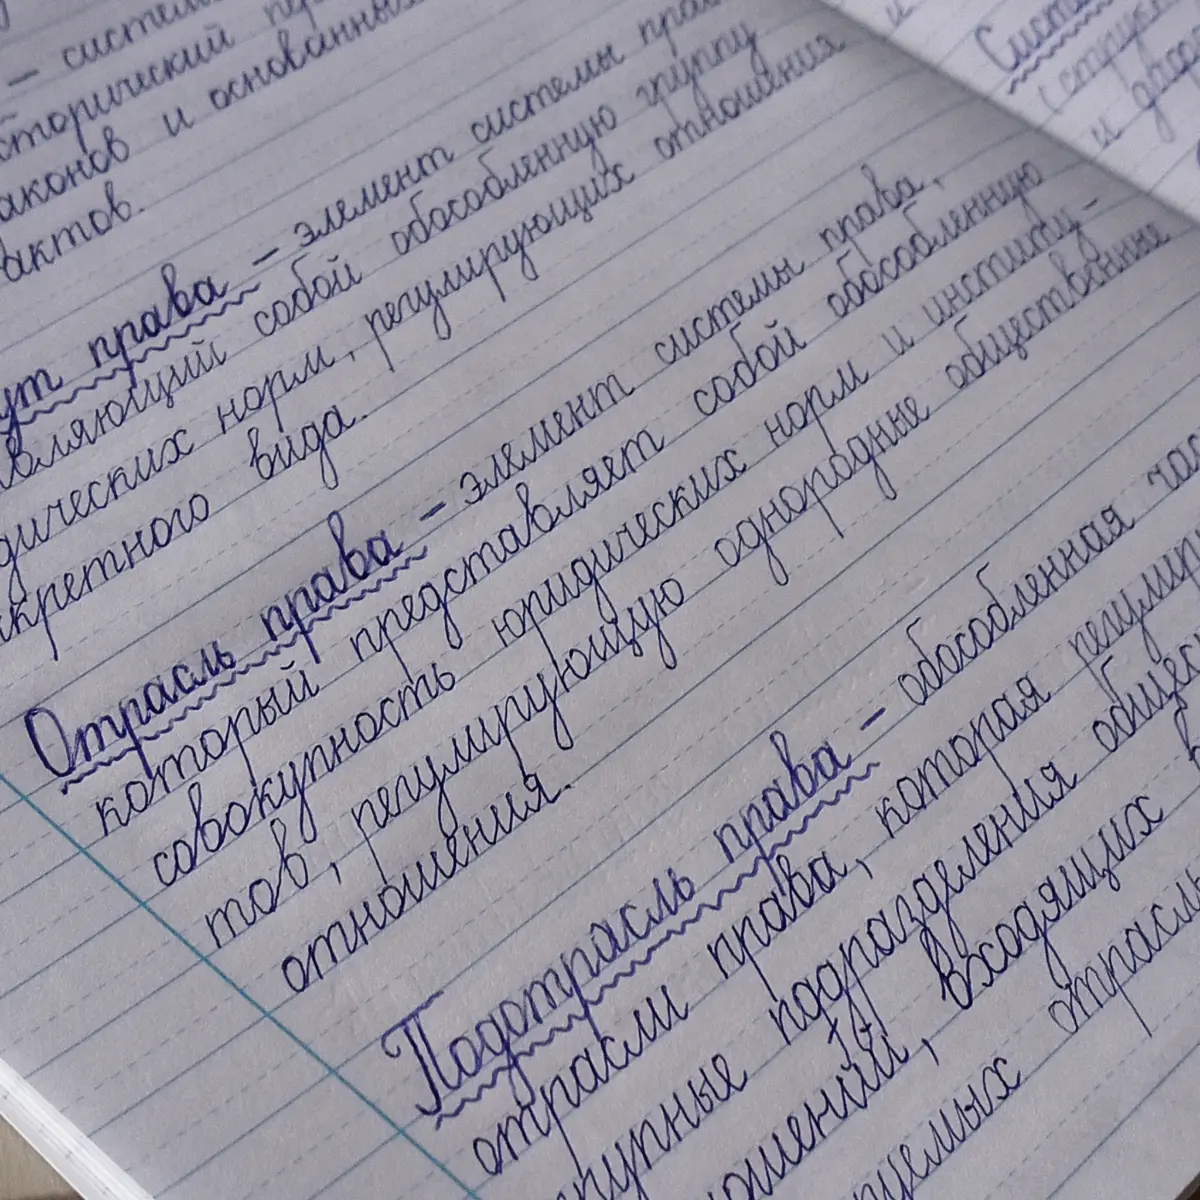 — систем
торический пе
аконов и основанных
актов.
ут права — элемент системы прав
вляющий собой обособленную группу
дических норм, регулирующих отношения
кретного вида.
Отрасль права — элемент системы права,
который представляет собой обособленную
совокупность юридических норм и институ-
тов, регулирующую однородные общественные
отношения.
Подотрасль права — обособленная час
отрасли права, которая регулиру
крупные подразделения общес
ношений, входящих в
руемых отрасль
Систе
(струк
и
и дво